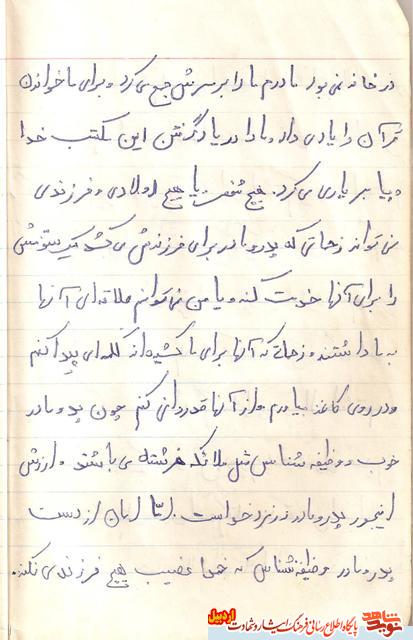 در خانه نمی بود مادرم ما را بر سرش جمع می کرد و برای ما خواندن
قرآن را یاری داد و ما را در یاد گرفتن این کتب خدا
و پیامبر یاری می کرد. هیچ شخص یا هیچ اولادی و فرزندی
نمی تواند زحماتی که پدر و مادر برای فرزندش می کشد یک ستونش
را برای آنها خدمت کند و یا من نمی توانم علاقه ای آنها
به ما داشتند و زحماتی که آنها برای ما کشیده اند کلمه ای پیدا کنم
و در روی کاغذ بیاورم و از آنها قدردانی کنم چون پدر و مادر
خوب و وظیفه شناس مثل ملائکه فرشته می باشند و ارزش
اینجور پدر و مادر نزد خداست. امّا امان از دست
پدر و مادر وظیفه نشناس که خدا نصیب هیچ فرزندی نکند.
نوید شاهد
پایگاه اطلاع رسانی فرهنگ ایثار و شهادت
اردبیل